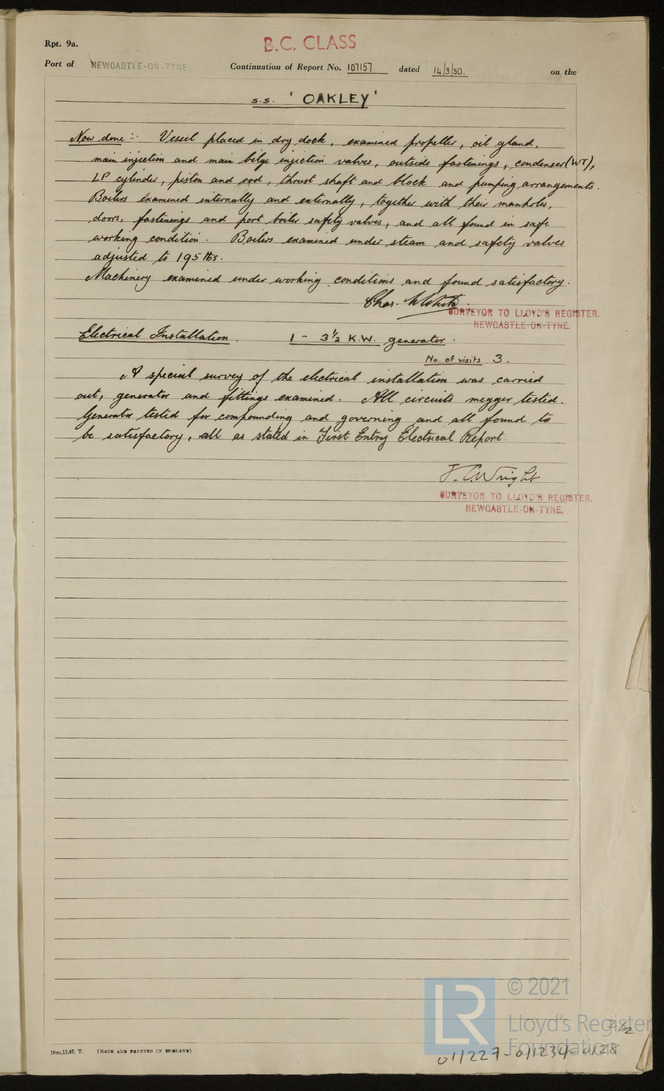 Rpt. 9a.
B.C. CLASS
Port of NEWCASTLE-ON-TYNE Continuation of Report No. 107157 dated 14/3/50. on the
s.s. 'OAKLEY'
Now done:- Vessel placed in dry dock, examined propeller, oil gland,
main injection and main bilge injection valves, outside fastenings, condenser (WT),
LP cylinder, piston and rod, thrust shaft and block and pumping arrangements.
Boilers examined internally and externally, together with their manholes,
doors, fastenings and port boiler safety valves, and all found in safe
working condition. Boilers examined under steam and safety valves
adjusted to 195 lbs.
Machinery examined under working conditions and found satisfactory.
Chas.
SURVEYOR TO LLOYD'S REGISTER.
NEWCASTLE-ON-TYNE.
Electrical Installation. 1 - 3½ K.W. generator.
No. of visits 3.
A special survey of the electrical installation was carried
out, generator and fittings examined. All circuits megger tested.
Generator tested for compounding and governing and all found to
be satisfactory, all as stated in First Entry Electrical Report
Wright
SURVEYOR TO LLOYD'S REGISTER.
NEWCASTLE-ON-TYNE.
LR © 2021
Lloyd's Register
Foundation
2/2
011227-011234-0128
(MADE AND PRINTED IN ENGLAND)